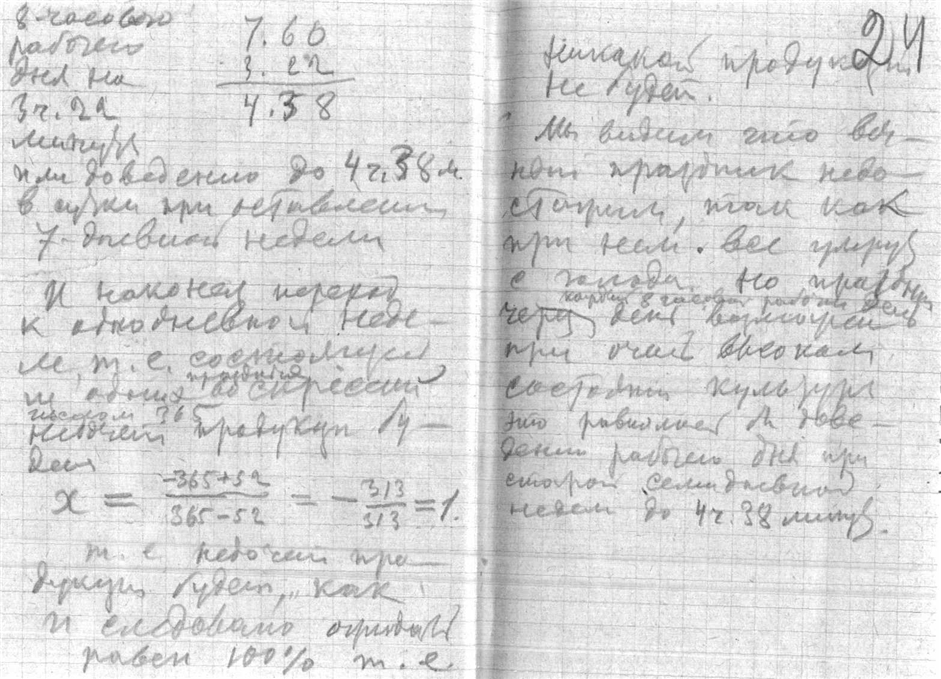 8-часового
рабочего
дня на
3ч. 22
минуты
7.60
3.22
4.38
или доведению до 4ч.38м.
в сутки при оставлении
7-дневной недели
И наконец переход
к однодневной неде-
ле, т.е. состоящей
из одних воскресений
праздников
числом 365
недочет продукции бу-
дет
x = -365+52 / 365-52 = - 313 / 313 = 1.
т.е. недочет про-
дукции будет, как
и следовало ожидать
равен 100% т.е.
24
никакой продукции
не будет.
Мы видим что веч-
ный праздник недо-
стижим, так как
при нем все умрут
с голода. Но праздник
каждый 8 часовой рабочий день
через день возможен
при очень высоком
состоянии культуры
это равносильно дове-
дению рабочего дня при
старой семидневной
неделе до 4ч.38 минут.